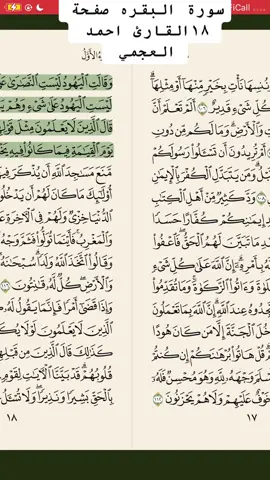 FiCall
سورة البقره صفحة
١٨القارئ احمد
العجمي
نُنسِهَا نَأْتِ بِخَيْرٍ مِّنْهَآ أَوْ مِثْلِهَآ
شَيْءٍ قَدِيرٌ ١٠٦ أَلَمْ تَعْلَمْ أَنَّ
وَٱلْأَرْضِ وَمَا لَكُم مِّن دُونِ
أَمْ تُرِيدُونَ أَن تَسْـَٔلُوا۟ رَسُولَكُمْ
وَمَن يَتَبَدَّلِ ٱلْكُفْرَ بِٱلْإِيمَٰنِ
وَدَّ كَثِيرٌ مِّنْ أَهْلِ ٱلْكِتَٰبِ
إِيمَٰنِكُمْ كُفَّارًا حَسَدًا
مَا تَبَيَّنَ لَهُمُ ٱلْحَقُّ فَٱعْفُوا۟
بِأَمْرِهِۦٓ إِنَّ ٱللَّهَ عَلَىٰ كُلِّ شَيْءٍ
وَءَاتُوا۟ ٱلزَّكَوٰةَ وَمَا تُقَدِّمُوا۟
تَجِدُوهُ عِندَ ٱللَّهِ إِنَّ ٱللَّهَ بِمَا تَعْمَلُونَ
ٱلْجَنَّةَ إِلَّا مَن كَانَ هُودًا
قُلْ هَاتُوا۟ بُرْهَٰنَكُمْ إِن كُنتُمْ
أَسْلَمَ وَجْهَهُۥ لِلَّهِ وَهُوَ مُحْسِنٌ فَلَهُۥٓ
خَوْفٌ عَلَيْهِمْ وَلَا هُمْ يَحْزَنُونَ ١١٢
١٧
وَقَالَتِ ٱلْيَهُودُ لَيْسَتِ ٱلنَّصَٰرَىٰ
لَيْسَتِ ٱلْيَهُودُ عَلَىٰ شَيْءٍ وَهُمْ
قَالَ ٱلَّذِينَ لَا يَعْلَمُونَ مِثْلَ قَوْلِهِمْ
يَوْمَ ٱلْقِيَٰمَةِ فِيمَا كَانُوا۟ فِيهِ
مَّنَعَ مَسَٰجِدَ ٱللَّهِ أَن يُذْكَرَ فِيهَا
أُو۟لَٰٓئِكَ مَا كَانَ لَهُمْ أَن يَدْخُلُوهَآ
ٱلدُّنْيَا خِزْىٌ وَلَهُمْ فِى ٱلْءَاخِرَةِ
وَٱلْمَغْرِبُ فَأَيْنَمَا تُوَلُّوا۟ فَثَمَّ وَجْهُ
وَقَالُوا۟ ٱتَّخَذَ ٱللَّهُ وَلَدًا سُبْحَٰنَهُۥ
وَٱلْأَرْضِ كُلٌّ لَّهُۥ قَٰنِتُونَ ١١٦
وَإِذَا قَضَىٰٓ أَمْرًا فَإِنَّمَا يَقُولُ لَهُۥ
ٱلَّذِينَ لَا يَعْلَمُونَ لَوْلَا
كَذَٰلِكَ قَالَ ٱلَّذِينَ مِن قَبْلِهِم
قُلُوبُهُمْ قَدْ بَيَّنَّا ٱلْءَايَٰتِ لِقَوْمٍ
بِٱلْحَقِّ بَشِيرًا وَنَذِيرًا وَلَا تُسْـَٔلُ
١٨